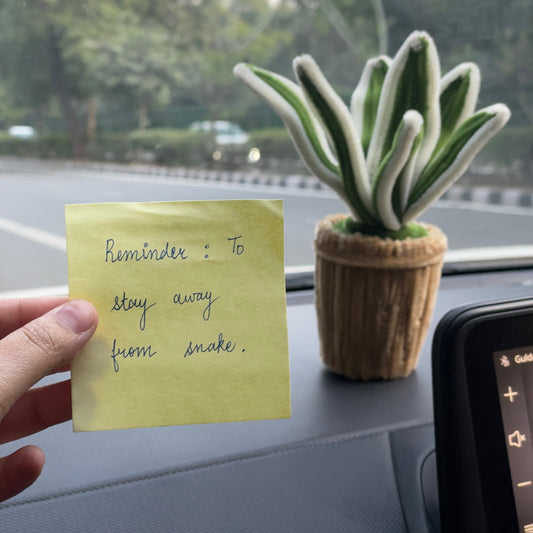 Reminder : To
stay away
from snake.
Guld